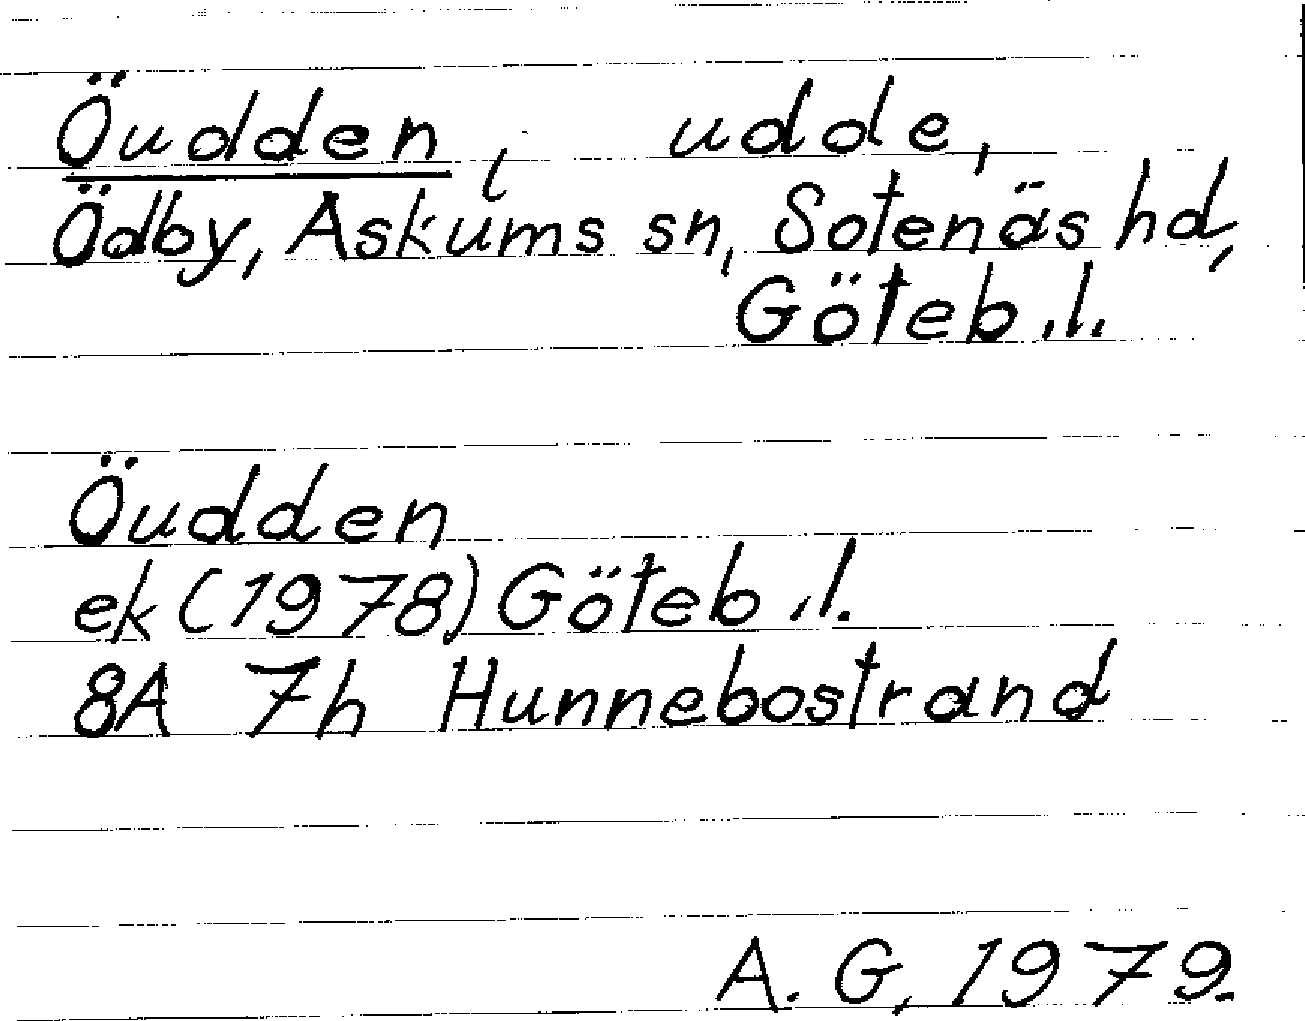 Öudden, udde,
Ödby, Askums sn, Sotenäs hd,
Göteb.l.
Öudden
ek (1978) Göteb.l.
8A 7h Hunnebostrand
A. G, 1979.